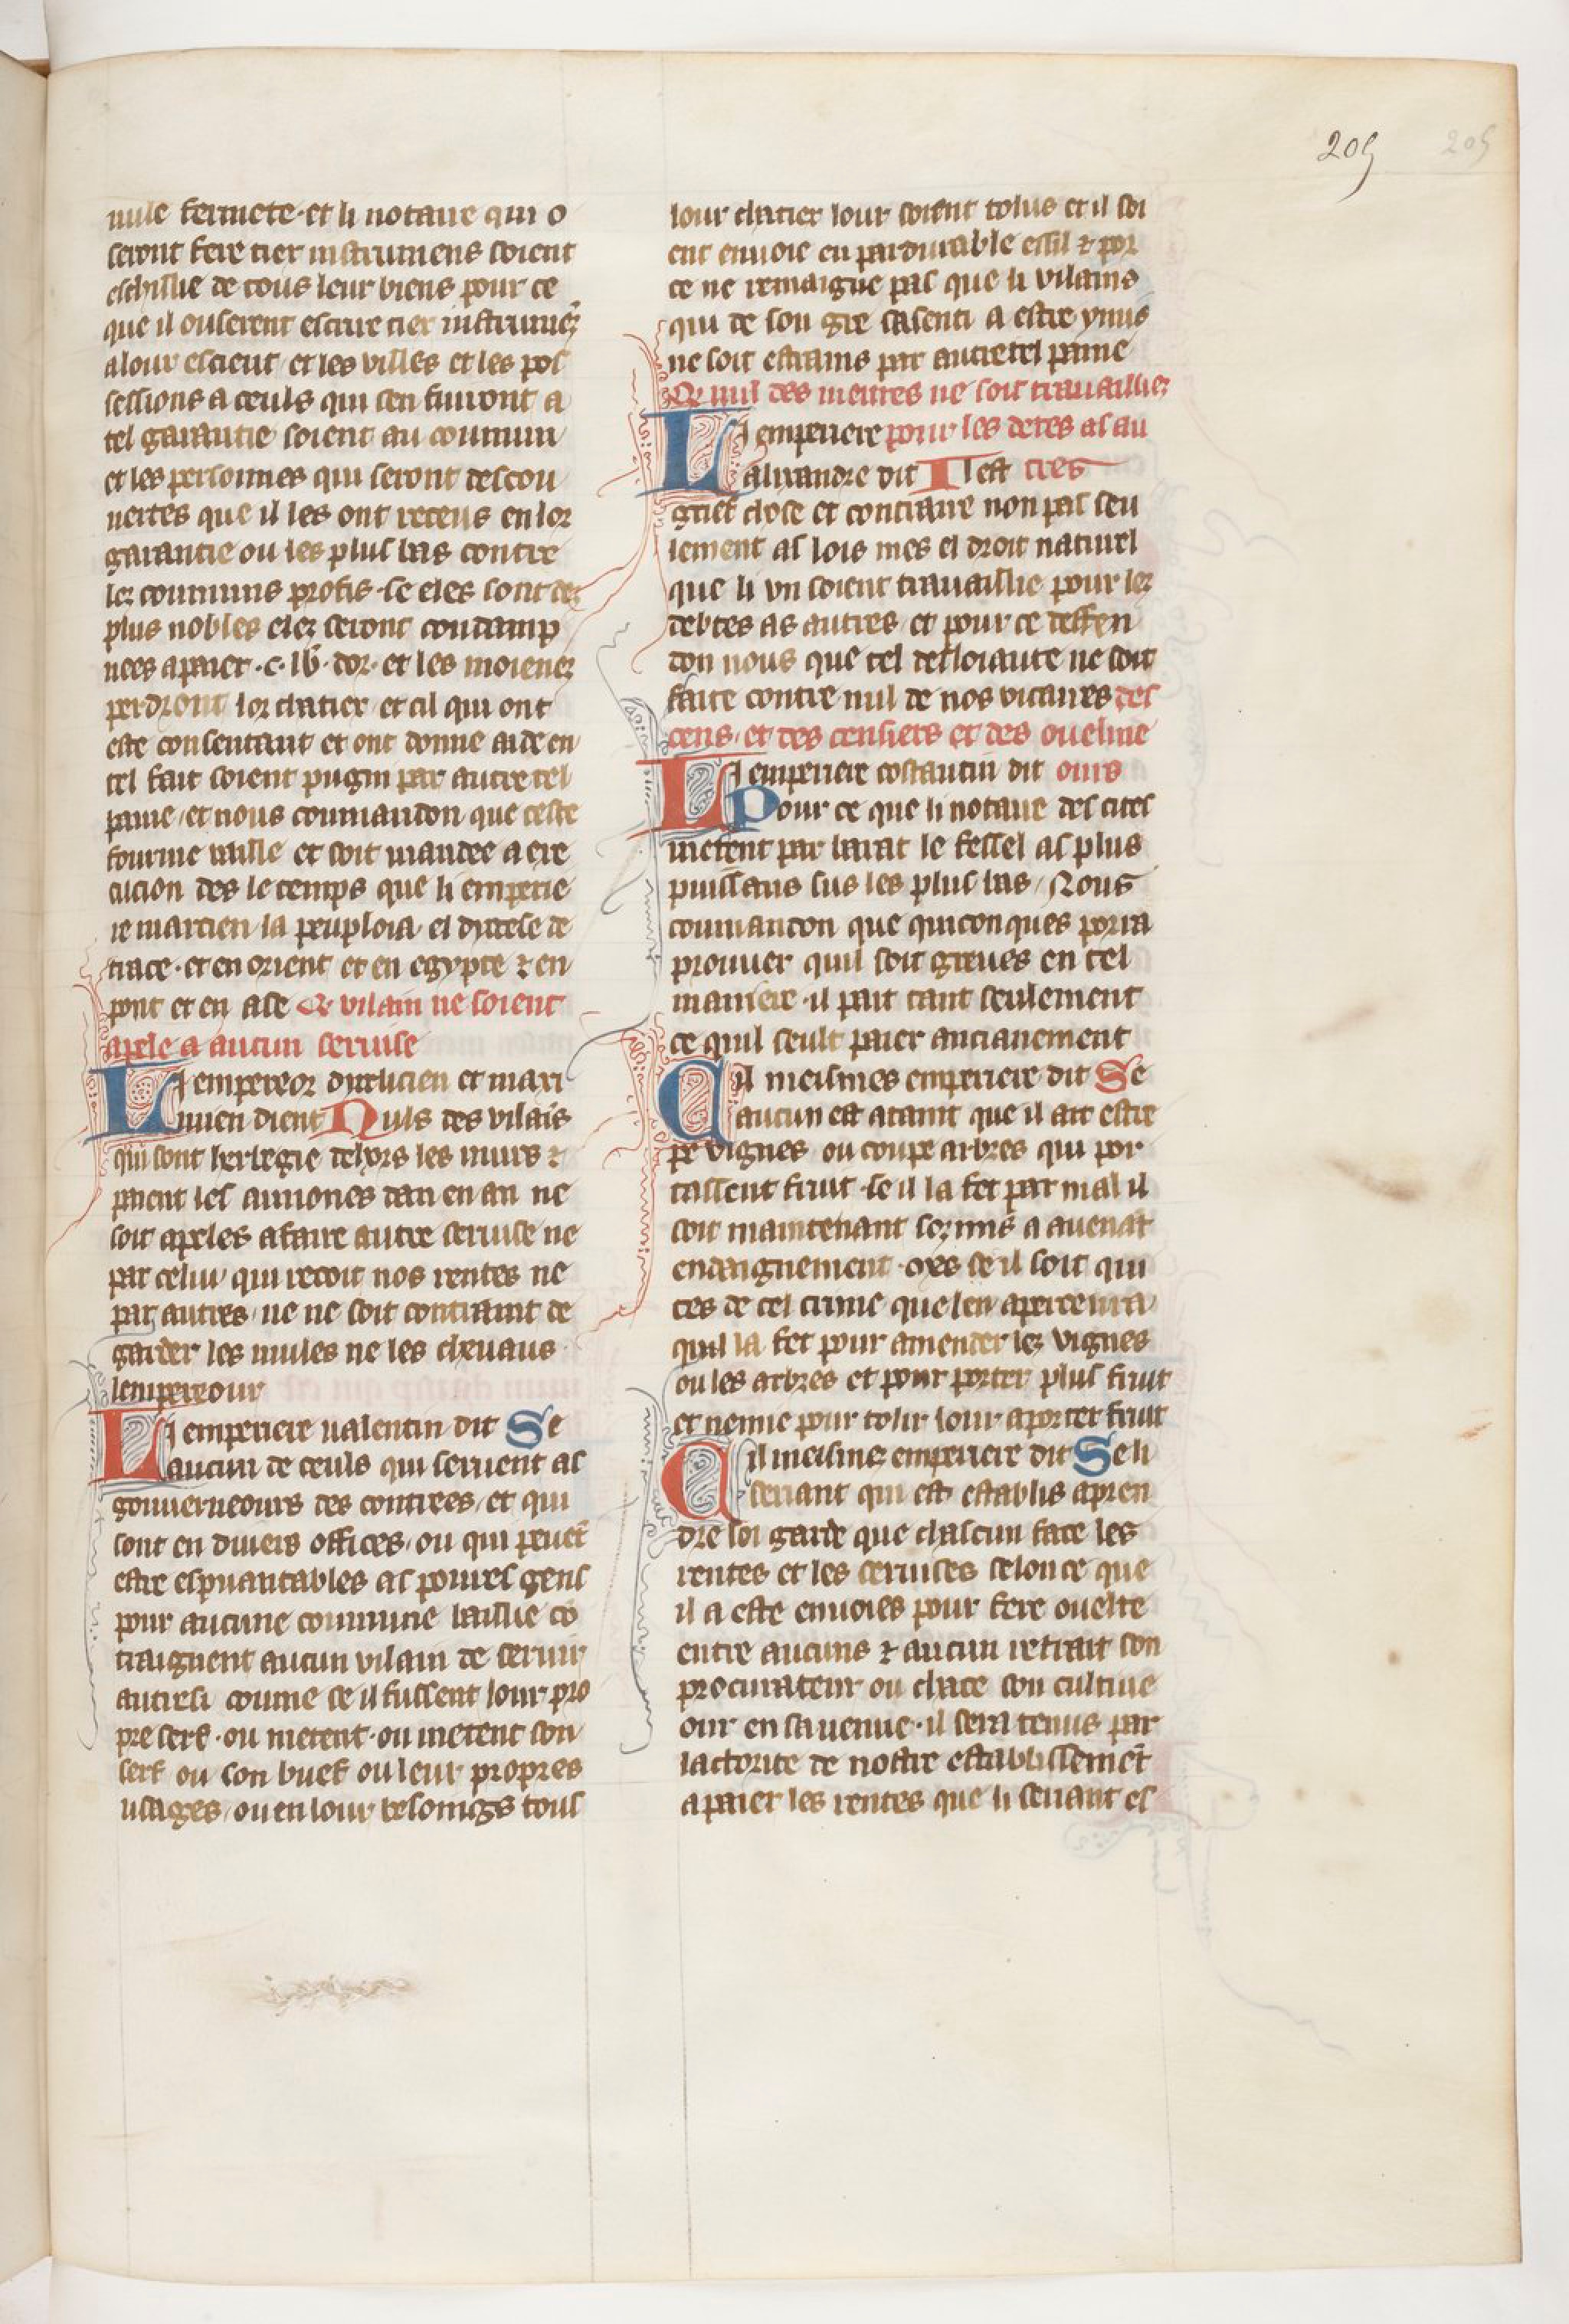 205 205
nule fermete · et li notaire qui o
seront fere tier instrumens soient
eschillie de tous leur biens pour ce
que il ouserent escrire tier instrumez
a lour escient / et les villes et les pos
sessions a ceuls qui sen fuiront a
tel garantie soient au coumun
et les personnes qui seront descou
uertes que il les ont receus en lor
garantie ou les plus bas contre
lez coumuns profis · se eles sont dez
plus nobles elez seront condamp
nees a paier · c · lb̄ · dor · et les moienez
perdront lor chatier / et cil qui ont
este consentant et ont donne aide en
tel fait soient pugni par autre tel
paine / et nous coumandon que ceste
fourme vaille et soit mandee a exe
cucion des le temps que li emperie
re marcien la peuploia el dyocese de
trace · et en orient et en egypte ⁊ en
pont et en ase Q̄ vilain ne soient
apele a aucun seruise
Li empereor dyoclicien et maxi
mien dient Nuls des vilais
qui sont herlegie dehors les murs ⁊
paient les annones dan en an ne
soit apeles a faire autre seruise ne
par celui qui recoit nos rentes ne
par autres / ne ne soit contraint de
garder les mules ne les cheuaus
lempereour
Li emperiere ualentin dit Se
aucun de ceuls qui seruent as
gouuerneours des contrees / et qui
sont en diuers offices / ou qui peuēt
estre espuantables as poures gens
pour aucune coumune baillie cō
traignent aucun vilain de seruir
autresi coume se il fussent lour pro
pre serf · ou metent · ou metent son
serf ou son buef ou leur propres
usages / ou en lour besoingz tous
lour chatier lour soient tolus et il soi
ent enuoie en pardurable essil ⁊ por
ce ne remaigne pas que li vilains
qui de son gre sasenti a estre ynus
ne soit estrains par autre tel paine
Q̄ nul des meures ne soit trauailliez
Li emperiere pour les detes as au
alixandre dit Il est tres
grief chose et contraire non pas seu
lement as lois mes el droit naturel
que li vn soient trauaillie pour lez
debtes as autres / et pour ce deffen
don nous que tel desloiaute ne soit
faite contre nul de nos vicaires des
cens / et des censiers et des oueline
Li emperiere costantin dit ours
Pour ce que li notaire des cites
metent par barat le fessel as plus
puissans sus les plus bas / Nous
coumandon que quiconques porra
prouuer quil soit greues en tel
maniere · il pait tant seulement
ce quil seult paier ancianement
Cil meismes emperiere dit Se
aucun est ataint que il ait estre
pe vignes ou coupe arbres qui por
tassent fruit · se il la fet par mal il
soit maintenant sozmis a auenāt
endaignement · mes se il soit qui
tes de cel crime que len aperceura
quil la fet pour amender lez vignes
ou les arbres et pour porter plus fruit
et nemie pour tolir lour a porter fruit
Cil meismez emperiere dit Se li
seriant qui est establis apren
dre soi garde que chascun face les
rentes et les seruises selonc ce que
il a este enuoies pour fere ouelte
entre aucuns ⁊ aucun retrait son
procurateur ou chace son cultiue
our en sa venue · il sera tenus par
lactorite de nostre establissemēt
a paier les rentes que li seriant es